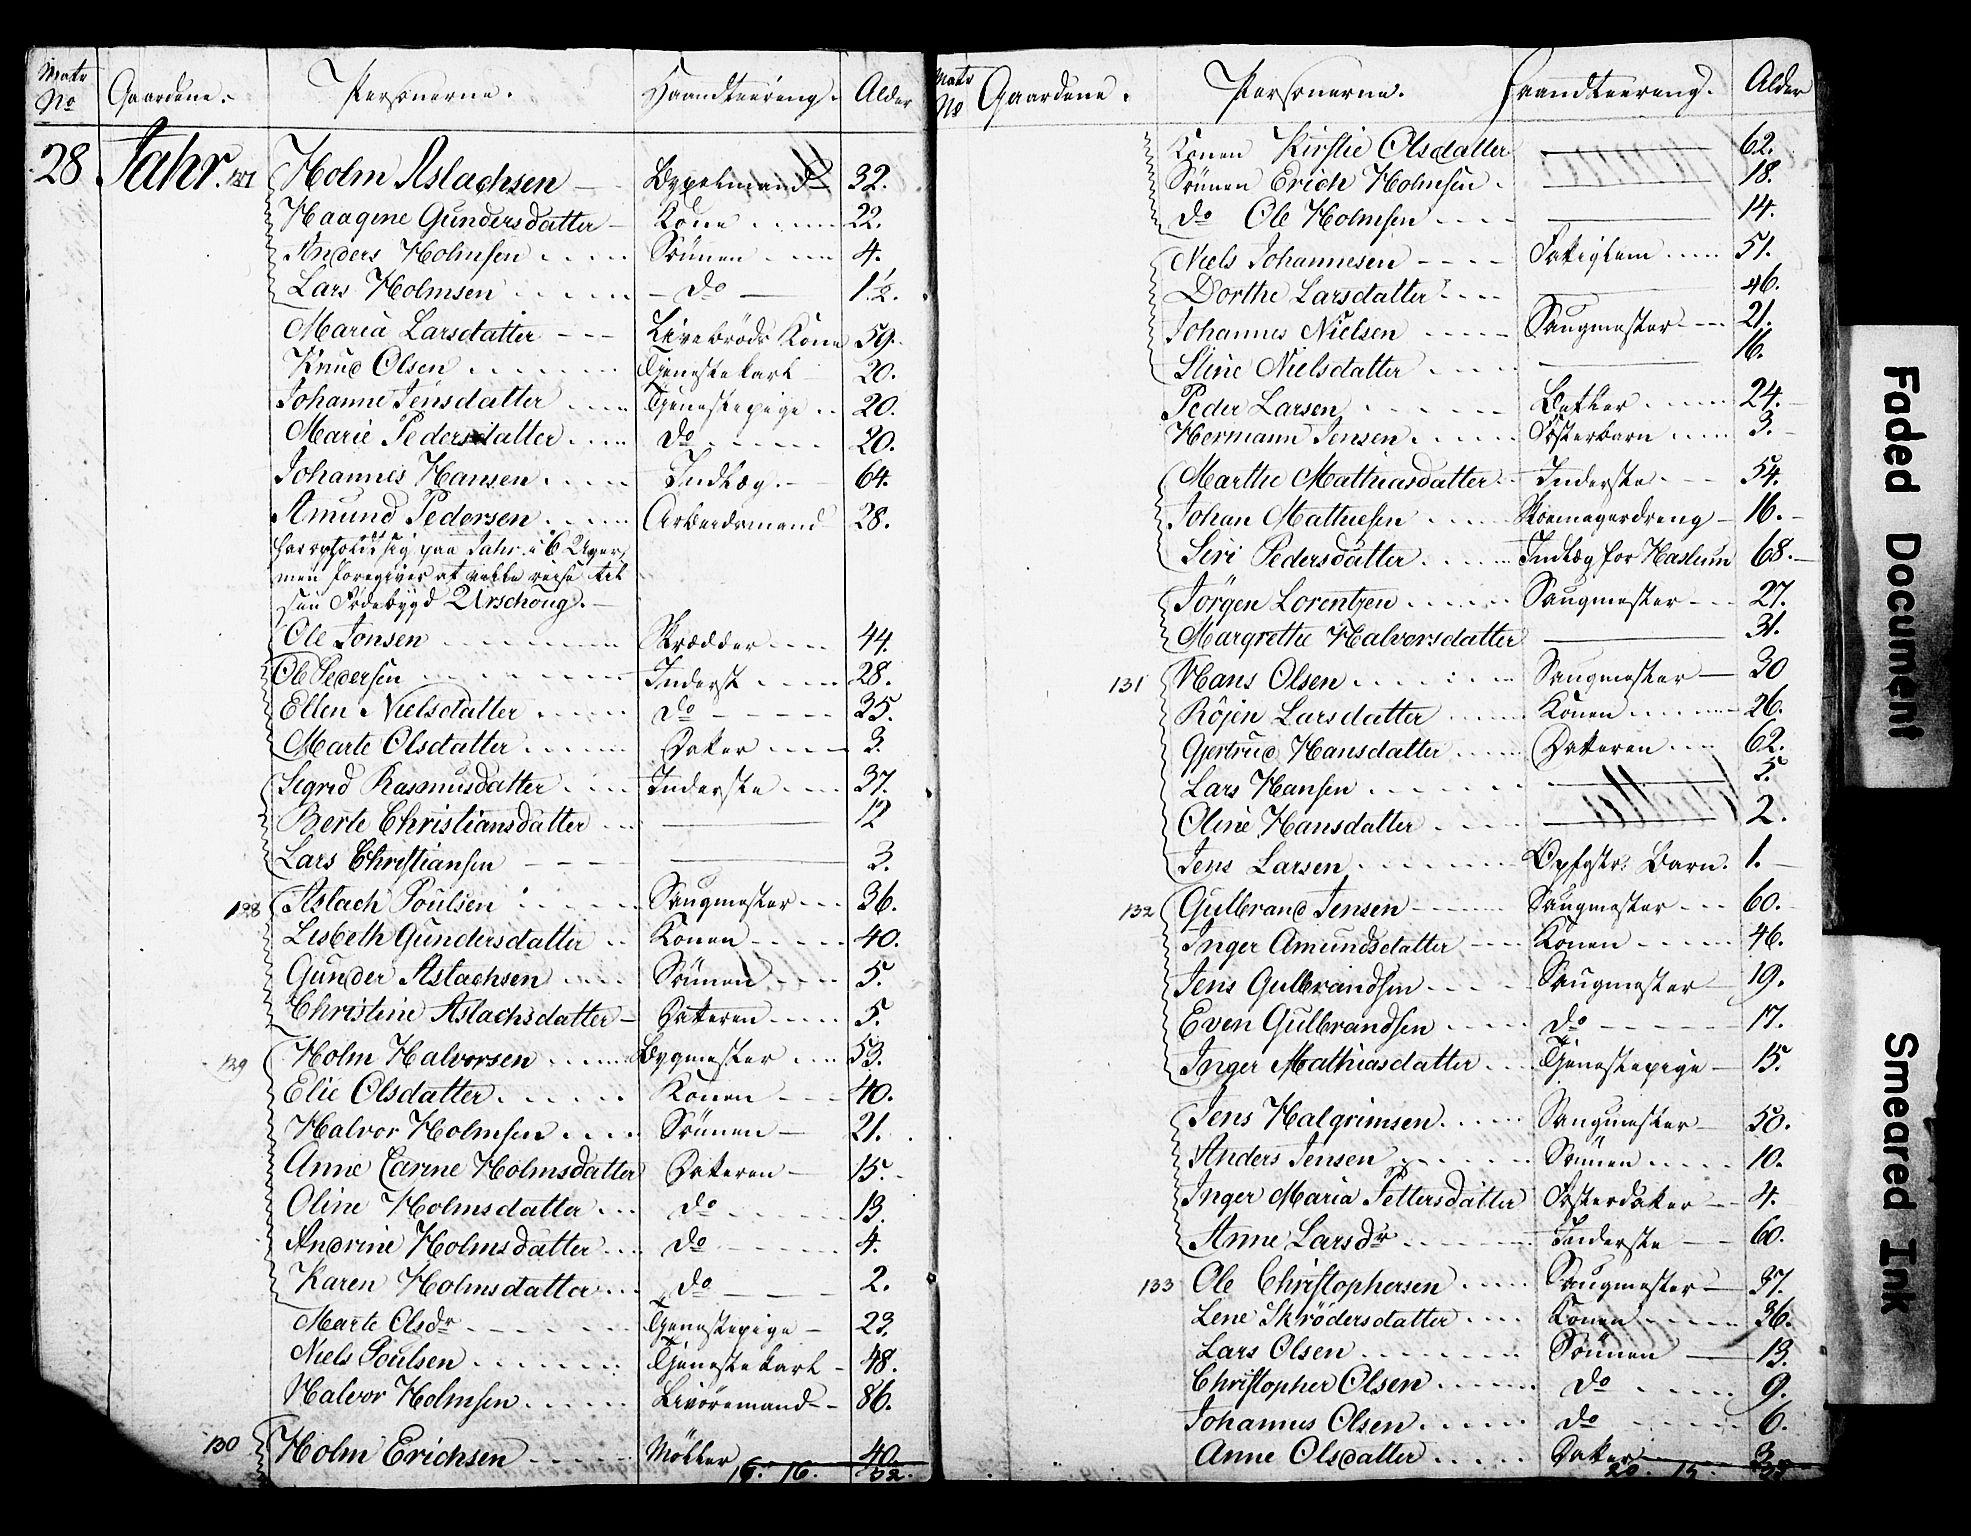 Matr No Gaardene. Personerne. Haandteering. Alder
28 Jahr. 127 Holm Aslachsen Bygselmand 32.
Haagene Gundersdatter Kone 22.
Anders Holmsen Sönnen 4.
Lars Holmsen do 1 1/2.
Maria Larsdatter Livebröds Kone 59.
Knud Olsen Tjenestekarl 20.
Johanne Jensdatter Tjenestepige 20.
Marie Pedersdatter do 20.
Johannes Hansen Indlæg. 64.
Amund Pedersen Arbeidsmand 28.
har opholdt sig paa Jahr i 6 Uger,
men foregiver at ville reise til
sin Födebygd Urschoug.
Ole Jonsen Skrædder 44.
Ole Pedersen Inderst 28.
Ellen Nielsdatter do 35.
Marte Olsdatter Datter 3.
Sigrid Rasmusdatter Inderste 37.
Berte Christiansdatter 12
Lars Christiansen 3.
128 Aslach Poulsen Saugmester 36.
Lisbeth Gundersdatter Konen 40.
Gunder Aslachsen Sönnen 5.
Christine Aslachsdatter Datteren 5.
129 Holm Halvorsen Bygmester 53.
Elie Olsdatter Konen 40.
Halvor Holmsen Sönnen 21.
Anne Carine Holmsdatter Datteren 15.
Oline Holmsdatter do 13.
Andrine Holmsdatter do 4.
Karen Holmsdatter do 2.
Marte Olsdr Tjenestepige 23.
Niels Poulsen Tjenestekarl 48.
Halvor Holmsen Livöremand 86.
130 Holm Erichsen Möller 40.
16. 16. 32.
Matr No Gaardene. Personerne. Haandteering. Alder
Konen Kirstie Olsdatter 62.
Sönnen Erich Holmsen 18.
do Ole Holmsen 14.
Niels Johannesen Fattiglem 51.
Dorthe Larsdatter 46.
Johannes Nielsen Saugmester 21.
Stine Nielsdatter 16.
Peder Larsen Betler 24.
Hermann Jensen Fosterbarn 3.
Marthe Mathiasdatter Inderste 54.
Johan Mathiesen Skomagerdreng 16.
Siri Pedersdatter Indlæg for Haslum 68.
Jörgen Lorentzen Saugmester 27.
Margrethe Halvorsdatter 31.
131 Hans Olsen Saugmester 30
Röjen Larsdatter Konen 26.
Gjertrud Hansdatter Datteren 62.
Lars Hansen 5.
Oline Hansdatter 2.
Jens Larsen Opfostr. Barn. 1.
132 Gulbrand Jensen Saugmester 60.
Inger Amundsdatter Konen 46.
Jens Gulbrandsen Saugmester 19.
Even Gulbrandsen do 17.
Inger Mathiasdatter Tjenestepige 15.
Jens Halgrimsen Saugmester 50.
Anders Jensen Sönnen 10.
Inger Maria Pettersdatter Fosterdatter 4.
Anne Larsdr Inderste 60.
133 Ole Christophersen Saugmester 37.
Lene Skrödersdatter Konen 36.
Lars Olsen Sönnen 13.
Christopher Olsen do 9.
Johannes Olsen do 6.
Anne Olsdatter Datter 3.
20. 15.
Faded Document
Smeared Ink